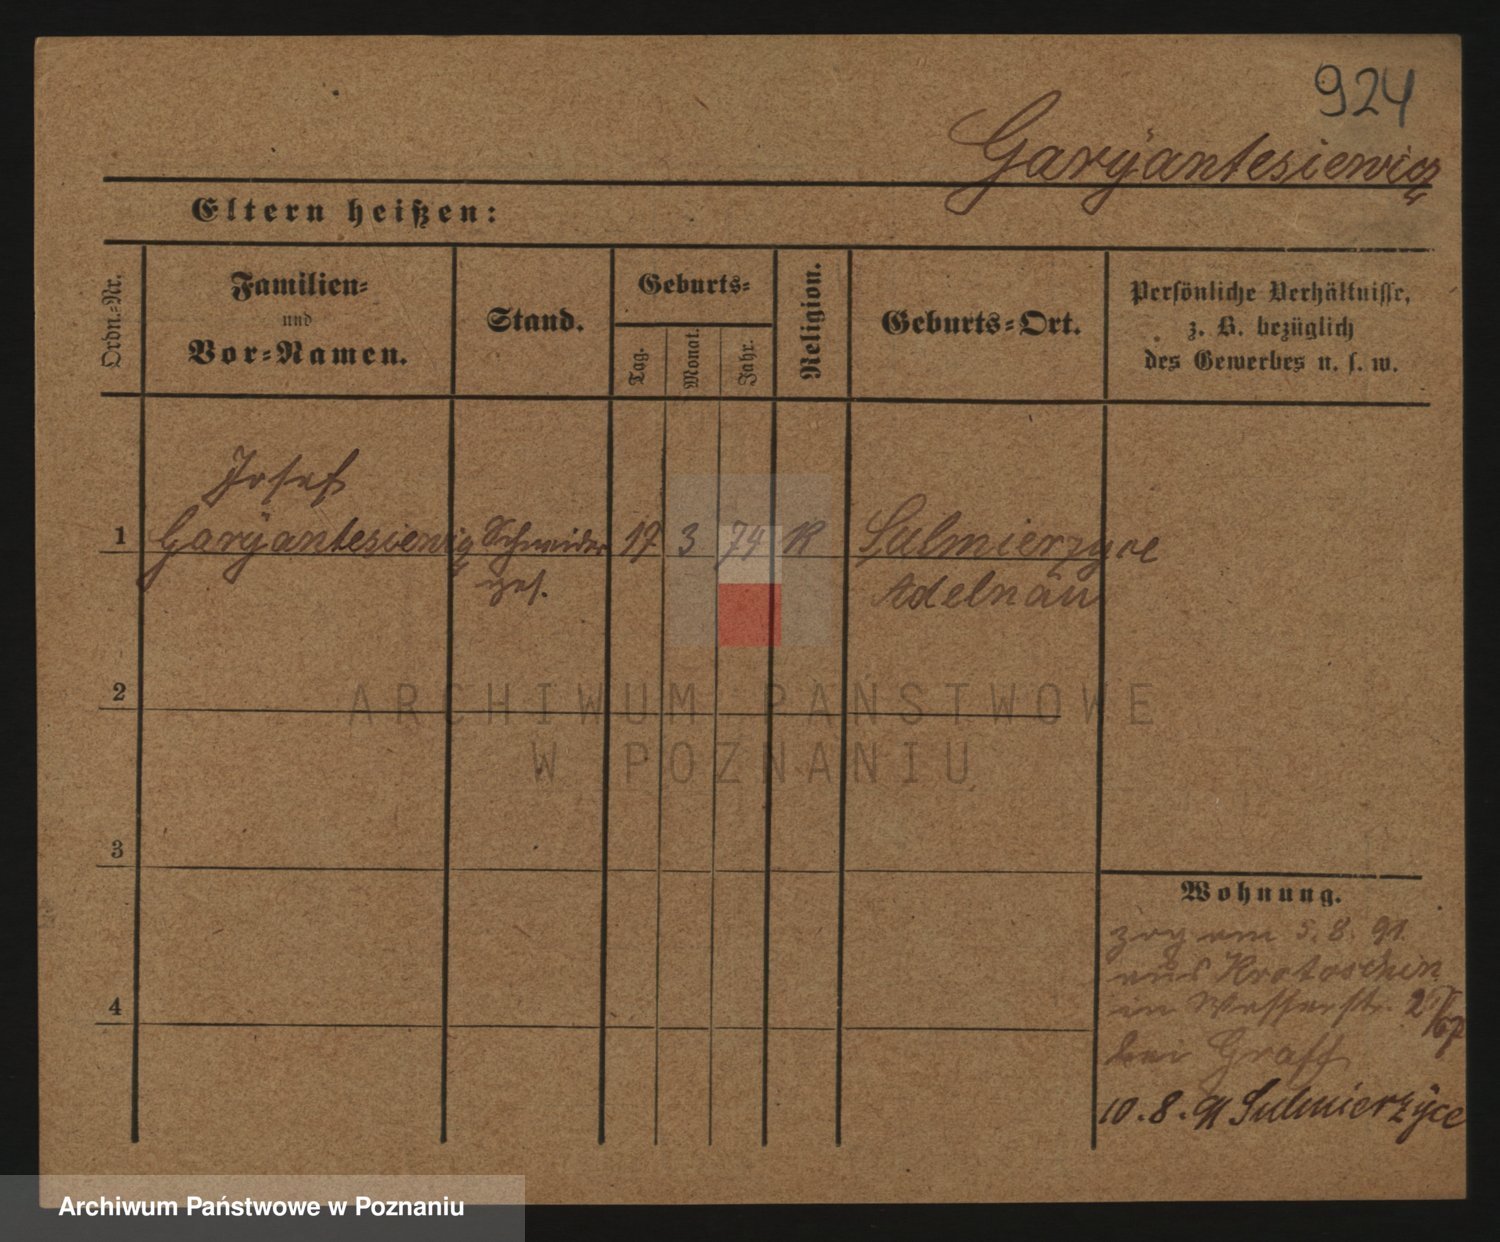 924
Garÿantesiewicz
Eltern heißen:
Ordn.-Nr.
Familien-
und
Vor-Namen.
Stand.
Geburts-
Tag.
Monat.
Jahr.
Religion.
Geburts-Ort.
Persönliche Verhältnisse,
z. B. bezüglich
des Gewerbes u. s. w.
Josef
1 Garÿantesiewicz Schneider 17 3 74 K Sulmierzyce
ges. Adelnau
2
ARCHIWUM PAŃSTWOWE
W POZNANIU
3
Wohnung.
zog am 5. 8. 91.
aus Krotoschin
in Wasserstr. 2
4
bei Graff
10. 8. 91 Sulmierzÿce
Archiwum Państwowe w Poznaniu